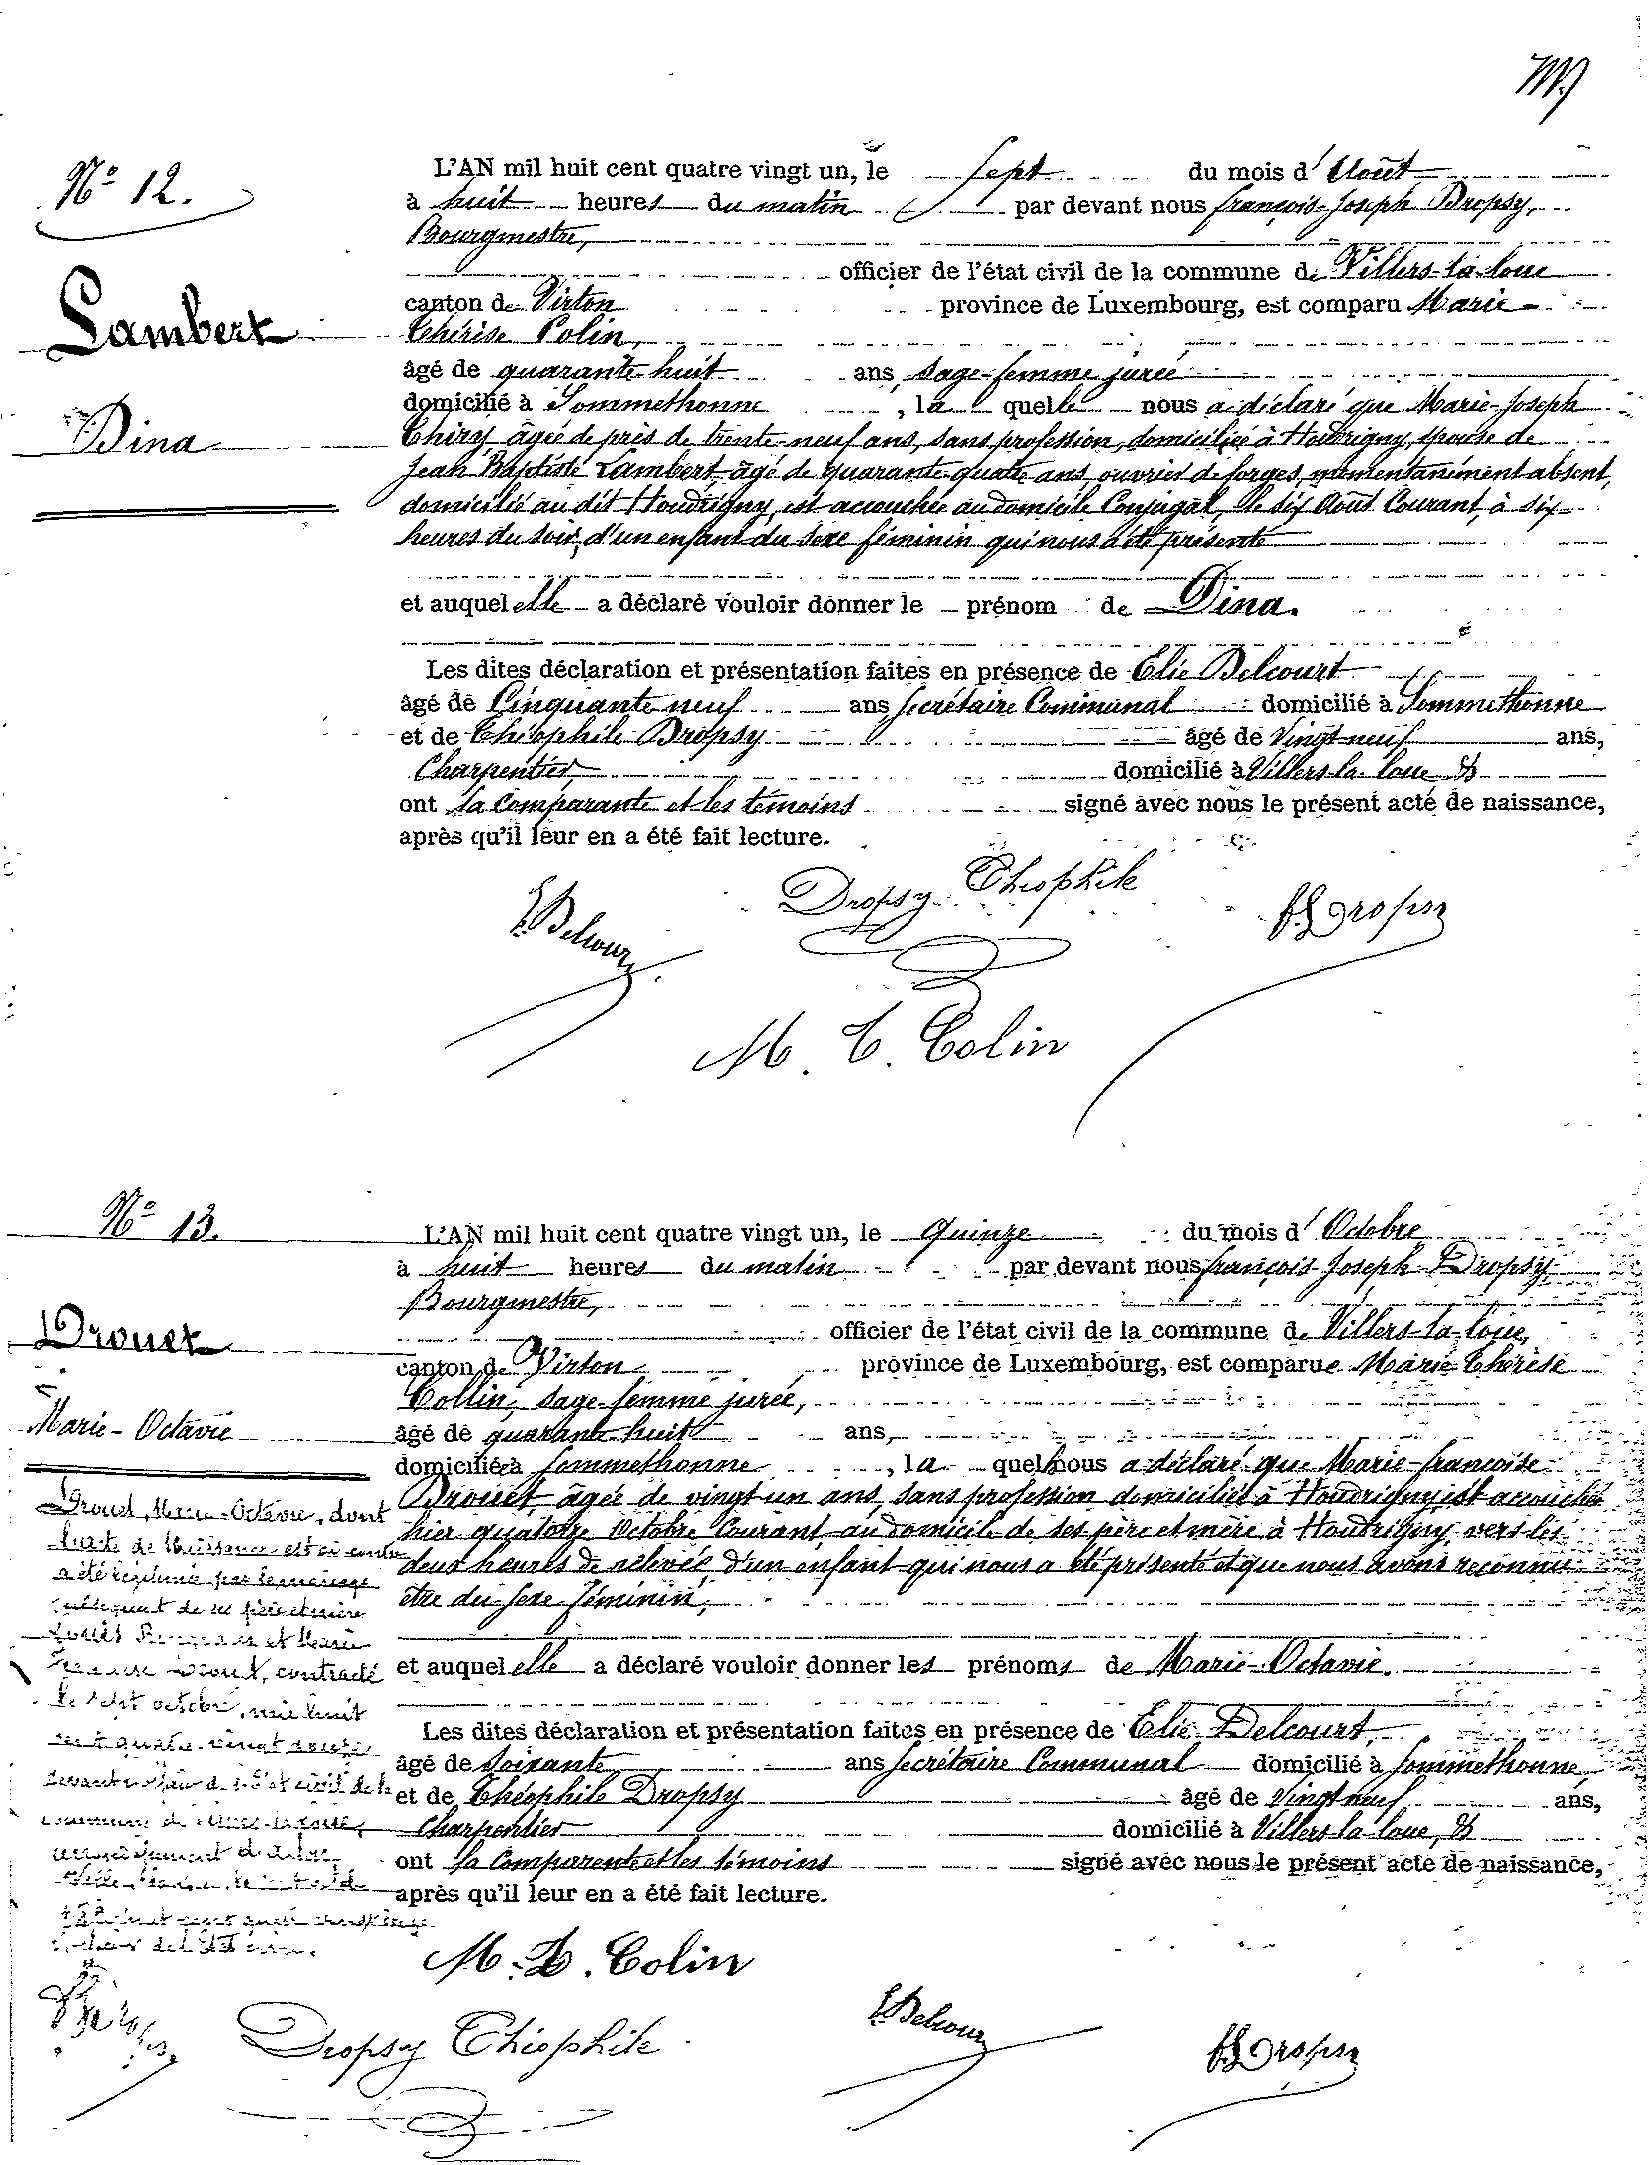 Nº 12.
Lambert
Dina
L'AN mil huit cent quatre vingt un, le sept du mois d' Août
à huit heures du matin par devant nous françois-Joseph Dropsy,
Bourgmestre,
officier de l'état civil de la commune de Villers-la-loue
canton de Virton province de Luxembourg, est comparu Marie
Thérèse Colin,
âgé de quarante-huit ans, sage-femme jurée
domicilié à Sommethonne , la quelle nous a déclaré que Marie-Joseph
Thiry, âgée de près de trente-neuf ans, sans profession, domiciliée à Houdrigny, épouse de
Jean Baptiste Lambert âgé de quarante-quatre ans, ouvrier de forges, momentanément absent,
domicilié au dit Houdrigny, est accouchée au domicile Conjugal, le six Août Courant, à six
heures du soir, d'un enfant du sexe féminin qui nous a été présenté
et auquel elle a déclaré vouloir donner le prénom de Dina.
Les dites déclaration et présentation faites en présence de Elie Delcourt
âgé de Cinquante neuf ans secrétaire Communal domicilié à Sommethonne
et de Théophile Dropsy âgé de Vingt-neuf ans,
Charpentier domicilié à Villers-la-loue, &
ont la Comparante et les témoins signé avec nous le présent acte de naissance,
après qu'il leur en a été fait lecture.
Dropsy Théophile
E Delcour
FJ Dropsy
M. T. Colin
Nº 13.
Drouet
Marie-Octavie
L'AN mil huit cent quatre vingt un, le Quinze du mois d' Octobre
à huit heures du matin par devant nous françois Joseph Dropsy
Bourgmestre,
officier de l'état civil de la commune de Villers-la-loue,
canton de Virton province de Luxembourg, est comparue Marie Thérèse
Collin, sage-femme jurée,
âgé de quarante-huit ans,
domiciliée à Sommethonne , la quelle nous a déclaré que Marie-françoise
Drouet, âgée de vingt un ans, sans profession domiciliée à Houdrigny, est accouchée
hier quatorze Octobre Courant, au domicile de ses père et mère à Houdrigny, vers les
deux heures de relevée, d'un enfant qui nous a été présenté et que nous avons reconnu
être du sexe féminin,
et auquel elle a déclaré vouloir donner les prénoms de Marie-Octavie.
Les dites déclaration et présentation faites en présence de Elie Delcourt,
âgé de soixante ans secrétaire Communal domicilié à Sommethonne,
et de Théophile Dropsy âgé de Vingt neuf ans,
Charpentier domicilié à Villers-la-loue, &
ont la Comparante et les témoins signé avec nous le présent acte de naissance,
après qu'il leur en a été fait lecture.
Drouet, Marie-Octavie, dont
l'acte de Naissance est ci contre
a été légitimée par le mariage
subséquent de ses père et mère
Louis et Marie
Drouet, contracté
le sept octobre, mil huit
cent quatre-vingt
devant de l'état civil de la
commune de Villers-la-loue,
arrondissement
de l'état civil.
M. T. Colin
Dropsy Théophile
E Delcour
FJ Dropsy